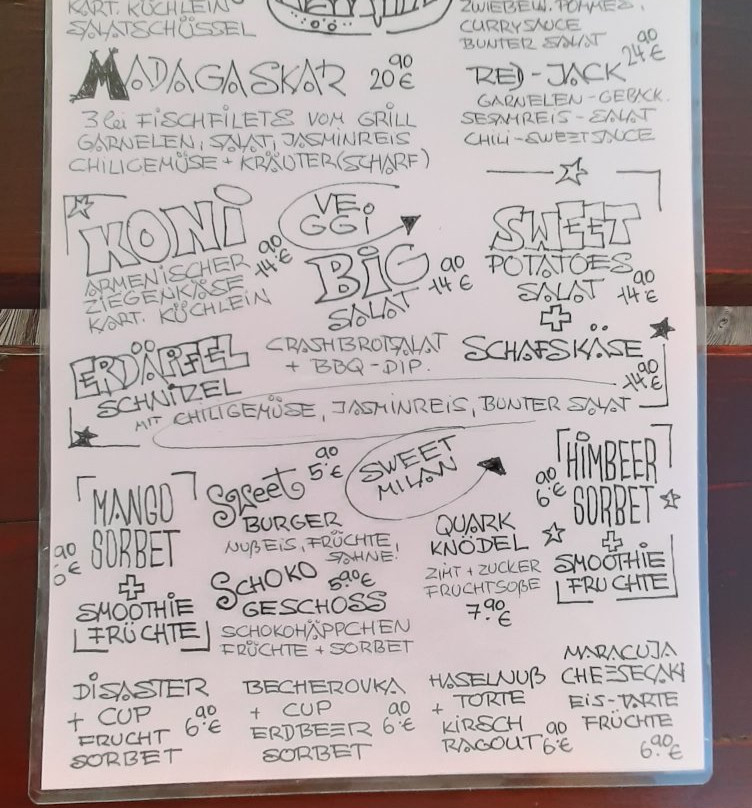 KART. KÜCHLEIN
SALATSCHÜSSEL
CURRYSAUCE
BUNTER SALAT
MADAGASKAR 20.90 €
3 lei FISCHFILETS VOM GRILL
GARNELEN, SALAT, JASMINREIS
CHILIGEMÜSE + KRÄUTER (SCHARF)
RED-JACK 24.90 €
GARNELEN-GEBACK.
SESAMREIS-SALAT
CHILI-SWEETSAUCE
KONI
ARMENISCHER 14.90 €
ZIEGENKÄSE
KART. KÜCHLEIN
VE
GGi
BiG 14.90 €
SALAT
CRASHBROTSALAT
+ BBQ-DIP.
SWEET
POTATOES
SALAT 14.90 €
+
SCHAFSKÄSE
ERDÄPFEL
SCHNIZEL 14.90 €
MIT CHILIGEMÜSE, JASMINREIS, BUNTER SALAT
MANGO
SORBET
+
SMOOTHiE
FRÜCHTE
Sweet 5.90 €
BURGER
NUßEIS, FRÜCHTE,
SAHNE!
SCHOKO 5.90 €
GESCHOSS
SCHOKOHÄPPCHEN
FRÜCHTE + SORBET
SWEET
MILAN
QUARK
KNÖDEL
ZIMT + ZUCKER
FRUCHTSOßE
7.90 €
HIMBEER
SORBET 6.90 €
+
SMOOTHiE
FRÜCHTE
DiSASTER
+ CUP
FRUCHT 6.90 €
SORBET
BECHEROVKA
+ CUP
ERDBEER 6.90 €
SORBET
HASELNUß
+ TORTE
KIRSCH
RAGOUT 6.90 €
MARACUJA
EiS-TARTE
FRÜCHTE
6.90 €